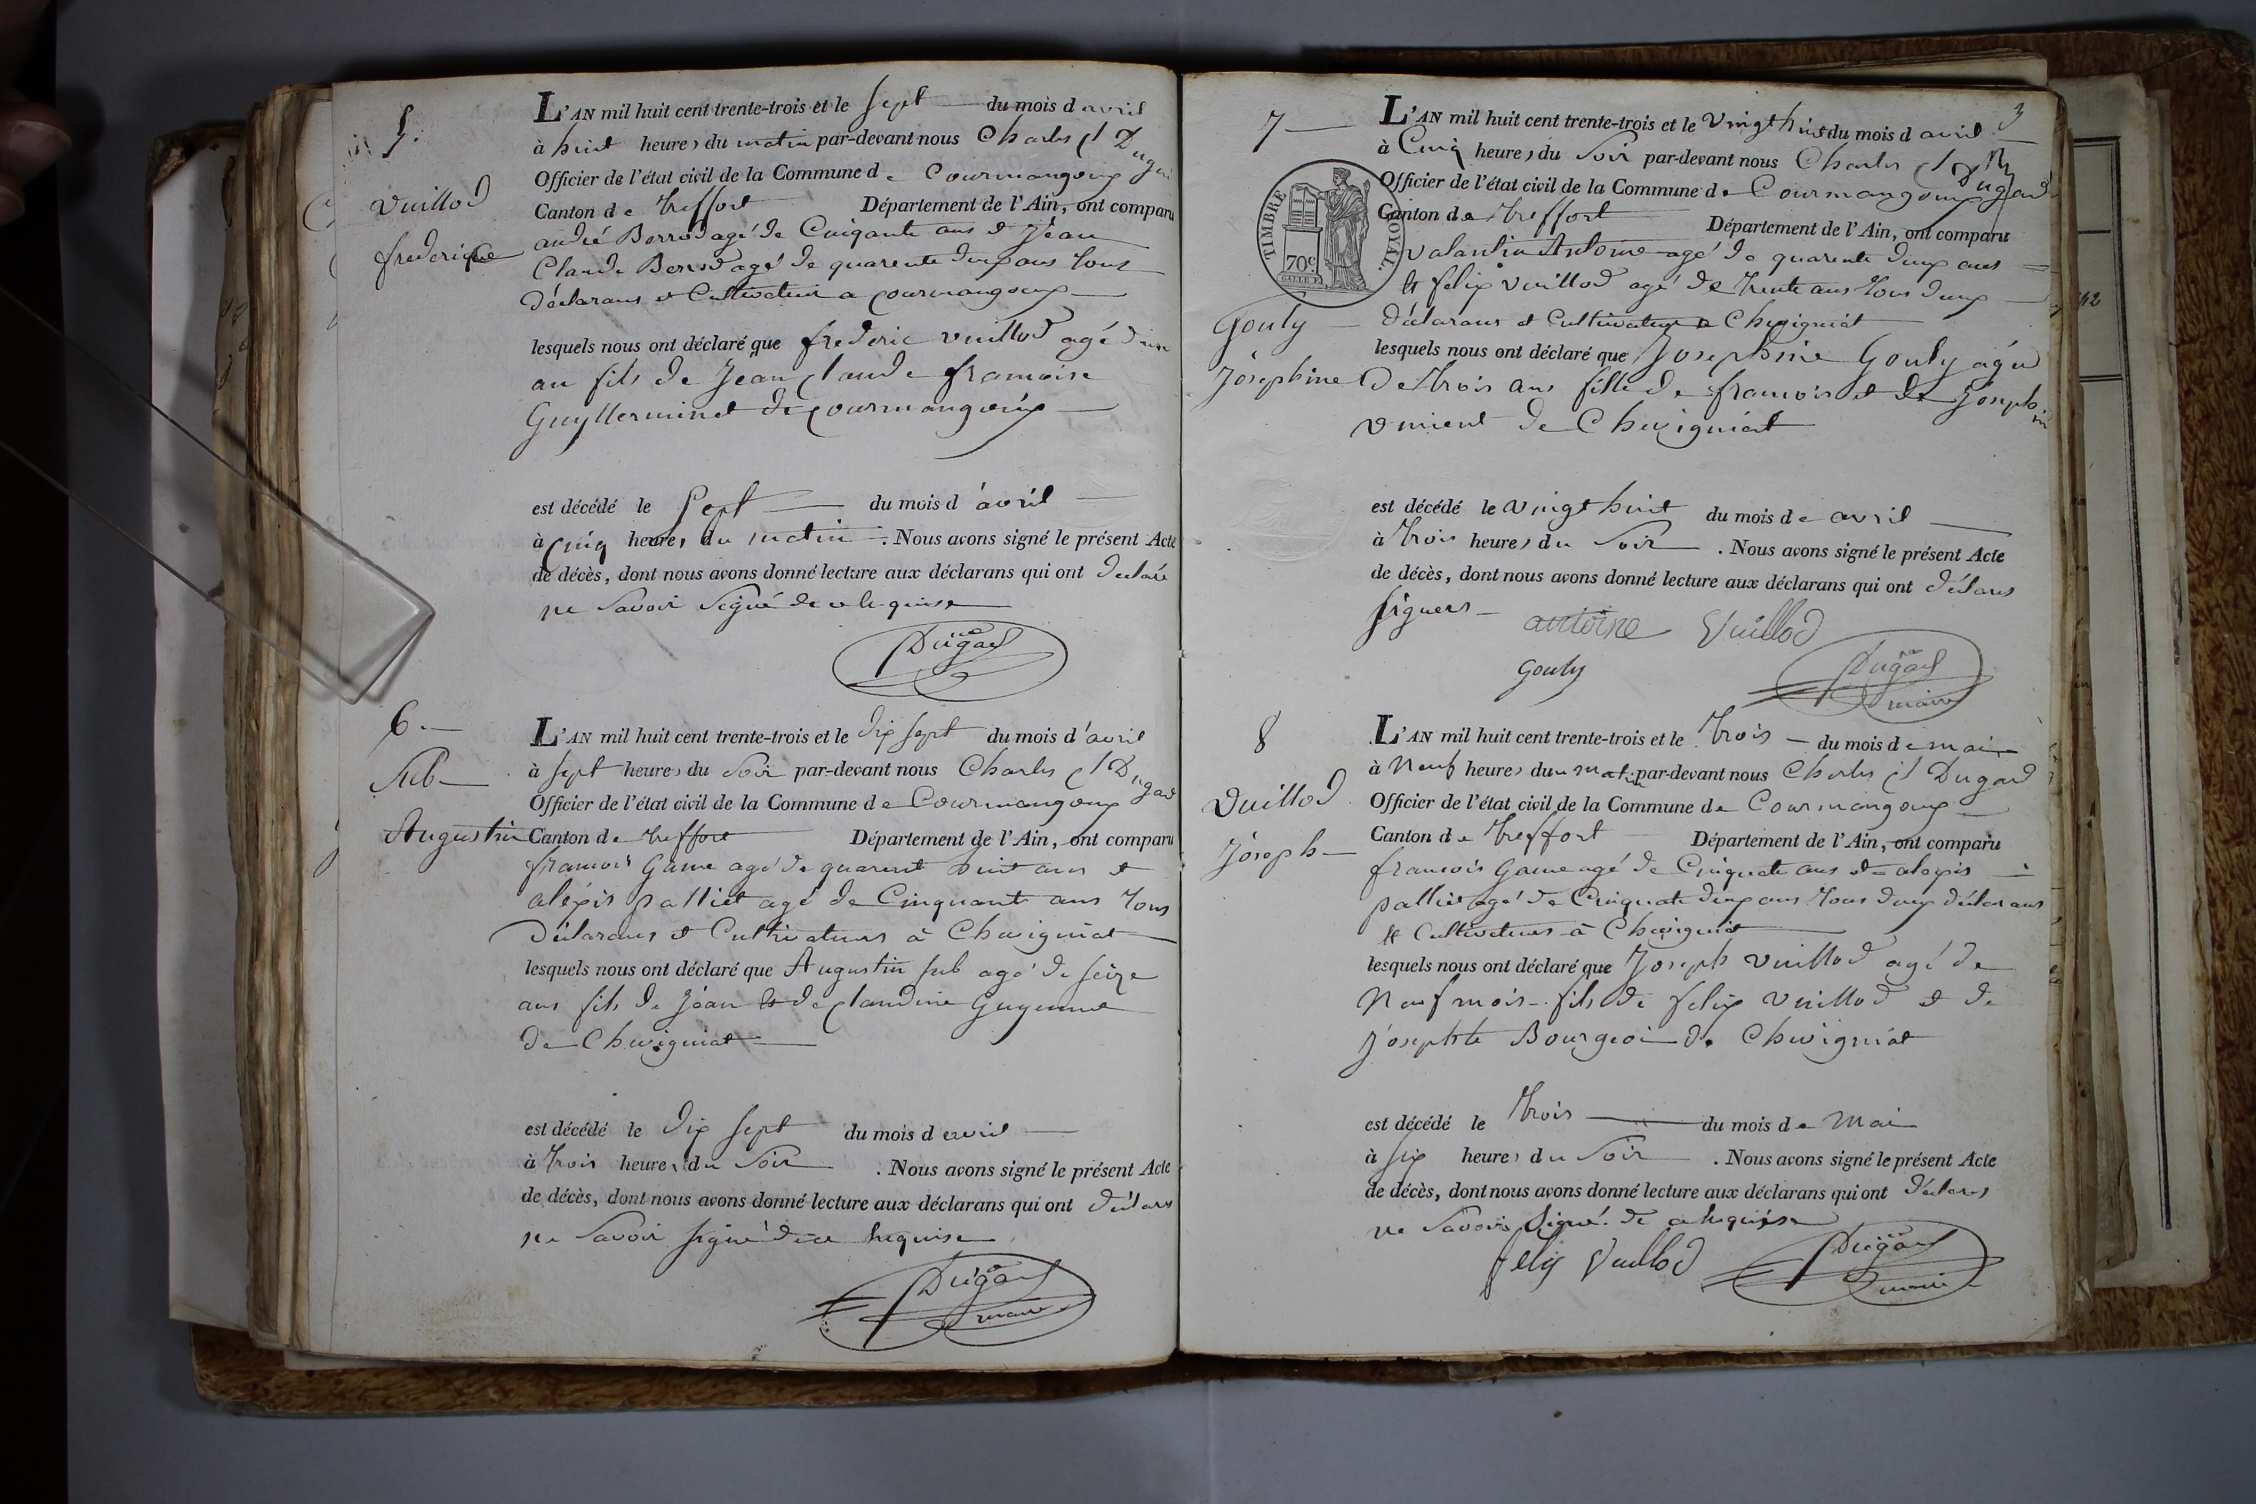 5.
Vuillod
frederique
L'AN mil huit cent trente-trois et le sept du mois d avril
à huit heures du matin par-devant nous Charles Cl Dugad
Officier de l'état civil de la Commune de Courmangoux
Canton de treffort Département de l'Ain, ont comparu
andré Borrod agé de Cinqante ans et Jéan
Claude Borrod agé de quarente deux ans tous
déclarans et Cultivateur a Courmangoux
lesquels nous ont déclaré que frederic vuillod agé d'un
an fils de Jéan Claude francoise
Guyllerminet de Courmangoux
est décédé le sept du mois d'avril
à cinq heures du matin. Nous avons signé le présent Acte
de décès, dont nous avons donné lecture aux déclarans qui ont declaré
ne Savoir Signé de ce he quise
Dugad
6.
Sub
Augustin
L'AN mil huit cent trente-trois et le dix sept du mois d'avril
à sept heures du Soir par-devant nous Charles Cl Dugad
Officier de l'état civil de la Commune de Courmangoux
Canton de treffort Département de l'Ain, ont comparu
francois Game agé de quarent huit ans et
aléxis palliet agé de Cinquante ans tous
Déclarans et Cultivateurs à Chevigniat
lesquels nous ont déclaré que Augustin sub agé de seize
ans fils de Jéan et de Claudine Guyennet
de Chevigniat
est décédé le dix sept du mois d avril
à trois heures du Soir. Nous avons signé le présent Acte
de décès, dont nous avons donné lecture aux déclarans qui ont déclaré
ne Savoir signé de ce hequise
Dugad
maire
3
7
Gouly
Joséphine
TIMBRE ROYAL.
70c
L'AN mil huit cent trente-trois et le vingt huit du mois d avril
à Cinq heures du Soir par-devant nous Charles Cl Dugad
Officier de l'état civil de la Commune de Courmangoux
Canton de treffort Département de l'Ain, ont comparu
valantin Antoine agé de quarente deux ans
et felix vuillod agé de trente ans tous deux
déclarans et Cultivateur a Chevigniat
lesquels nous ont déclaré que Joséphine Gouly agée
de trois ans fille de francois et de Joseph
vuient de Chevigniat
est décédé le vingt huit du mois de avril
à trois heures du Soir. Nous avons signé le présent Acte
de décès, dont nous avons donné lecture aux déclarans qui ont déclaré
signers antoine Vuillod
Gouly
Dugad
maire
8
Vuillod
Joseph
L'AN mil huit cent trente-trois et le trois du mois de mai
à Neuf heures du matin par-devant nous Charles Cl Dugad
Officier de l'état civil de la Commune de Courmangoux
Canton de treffort Département de l'Ain, ont comparu
francois Game agé de Cinquate ans et alexis
palliet agé de Cinquate deux ans tous deux déclarans
et Cultivateurs à Chevigniat
lesquels nous ont déclaré que Joseph vuillod agé de
Neuf mois fils de felix vuillod et de
Joséphte Bourgeoi de Chevigniat
est décédé le trois du mois de Mai
à six heures du Soir. Nous avons signé le présent Acte
de décès, dont nous avons donné lecture aux déclarans qui ont déclaré
ne Savoir Signé de ce hequise
felix Vuillod
Dugad
maire